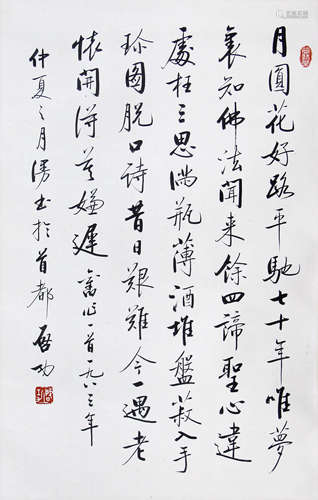 月圓花好路平馳七十年唯夢
裏知佛法聞來餘四諦聖心違
處枉三思滿瓶薄酒堆盤菽入手
珍圖脫口詩昔日艱難今一遇老
懷開得莫嫌遲 舊作一首一九八三年
仲夏之月書於首都 啟功